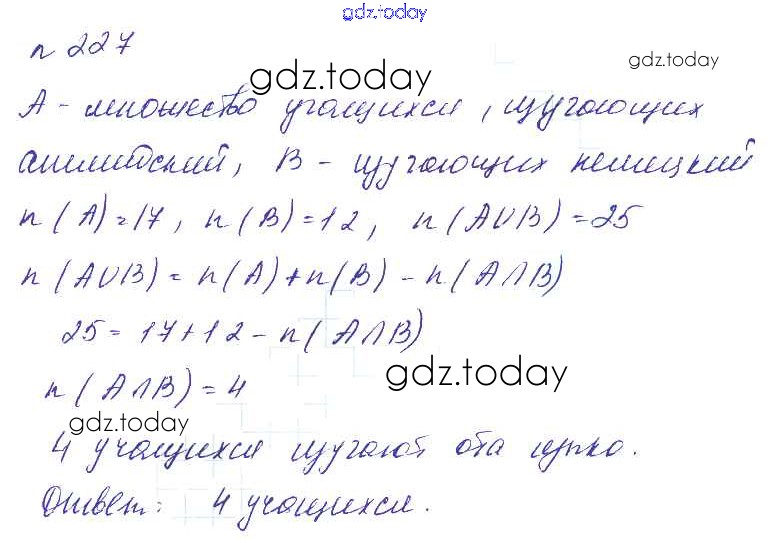 gdz.today
n 227
gdz.today
gdz.today
A - множество учащихся, изучающих
английский, B - изучающих немецкий
n(A)=17, n(B)=12, n(A∪B)=25
n(A∪B)=n(A)+n(B)-n(A∩B)
25=17+12-n(A∩B)
gdz.today
n(A∩B)=4
gdz.today
4 учащихся изучают оба языка.
Ответ: 4 учащихся.